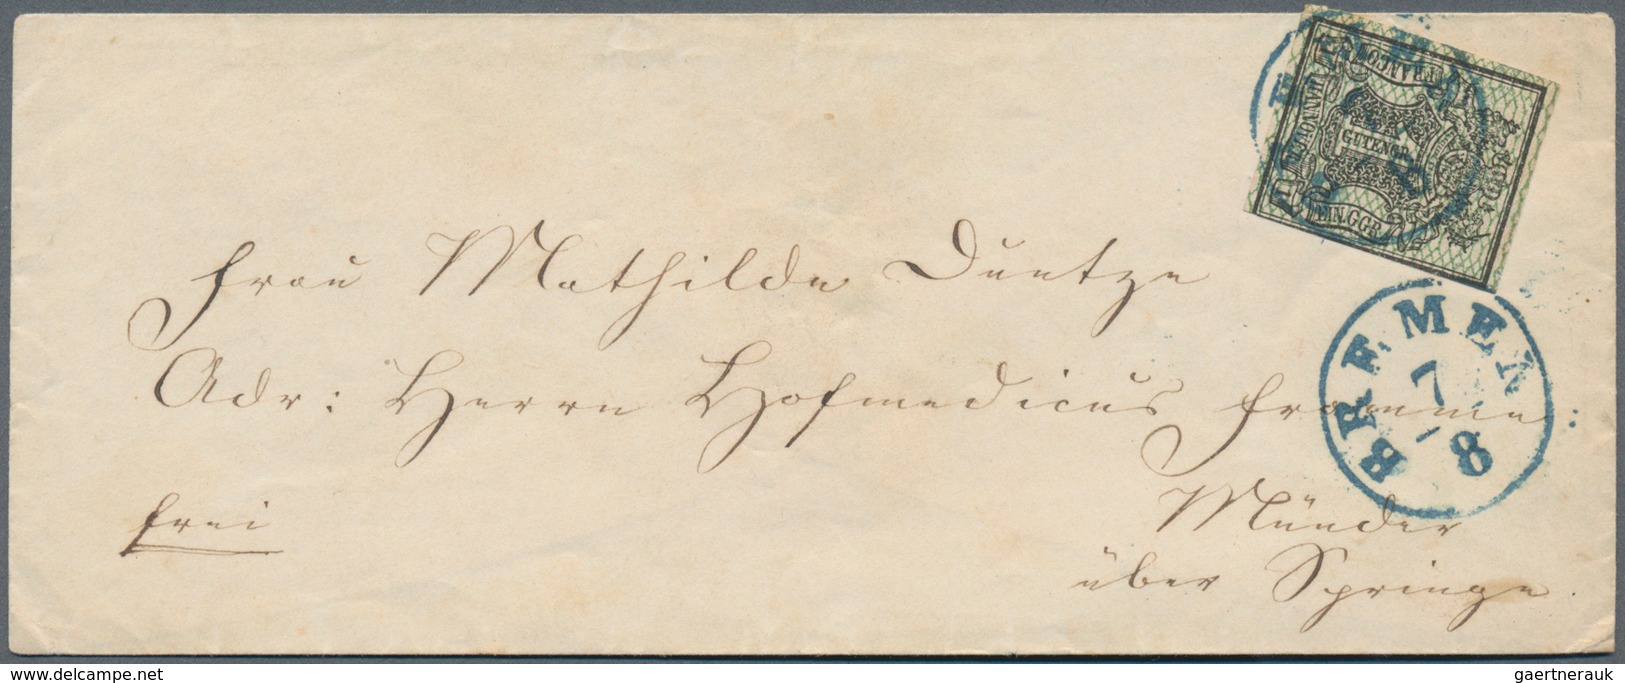 FRANCO
HANNOVER
1
GUTENGR
EIN.GGR.
BREMEN
7
8
Frau Mathilde Duntze
Adr: Herrn Hofmedicus Fromme
frei
Münder
über Springe.
delcampe.net
gaertnerauk